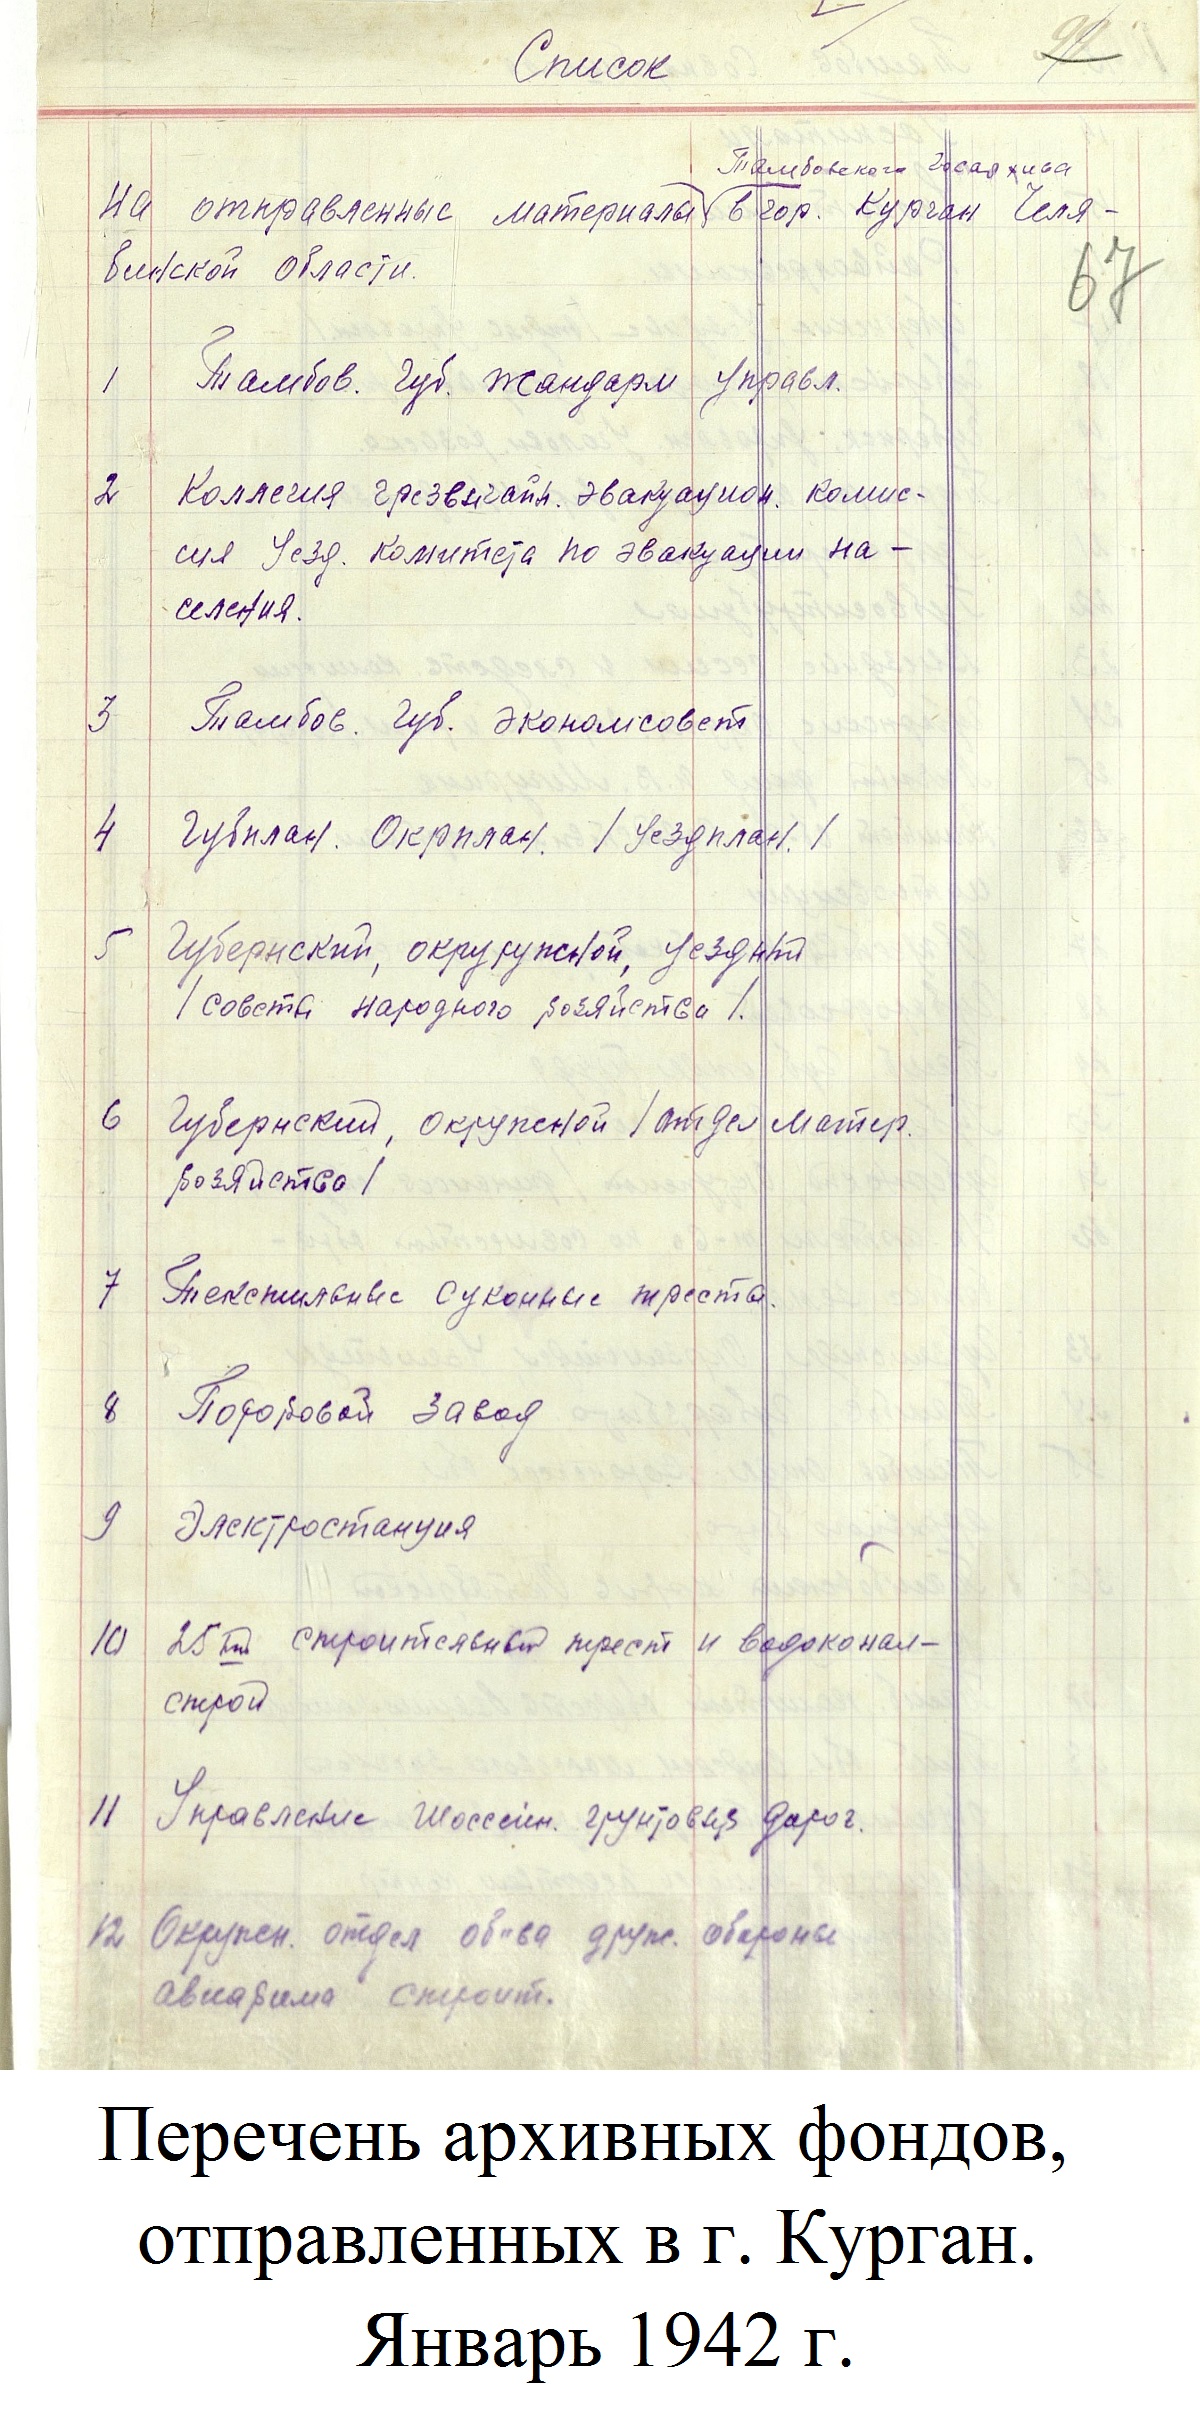 94
Список
Тамбовского Госархива
На отправленные материалы в гор. Курган Челя-
бинской области.
67
1 Тамбов. Губ. жандарм управл.
2 Коллегия чрезвычайн. эвакуацион. комис-
сия Уезд. комитета по эвакуации на-
селения.
3 Тамбов. Губ. экономсовет
4 Губплан. Окрплан. / Уездплан. /
5 Губернский, окружной, уездный
/ советы народного хозяйства /.
6 Губернский, окружной / отдел матер.
хозяйства /
7 Текстильные суконные тресты.
8 Пороховой завод
9 Электростанция
10 25тый строительный трест и водоканал-
строй
11 Управление шоссейн. грунтовых дорог.
12 Окружн. отдел об-ва друж. обороны
авиахима строит.
Перечень архивных фондов,
отправленных в г. Курган.
Январь 1942 г.